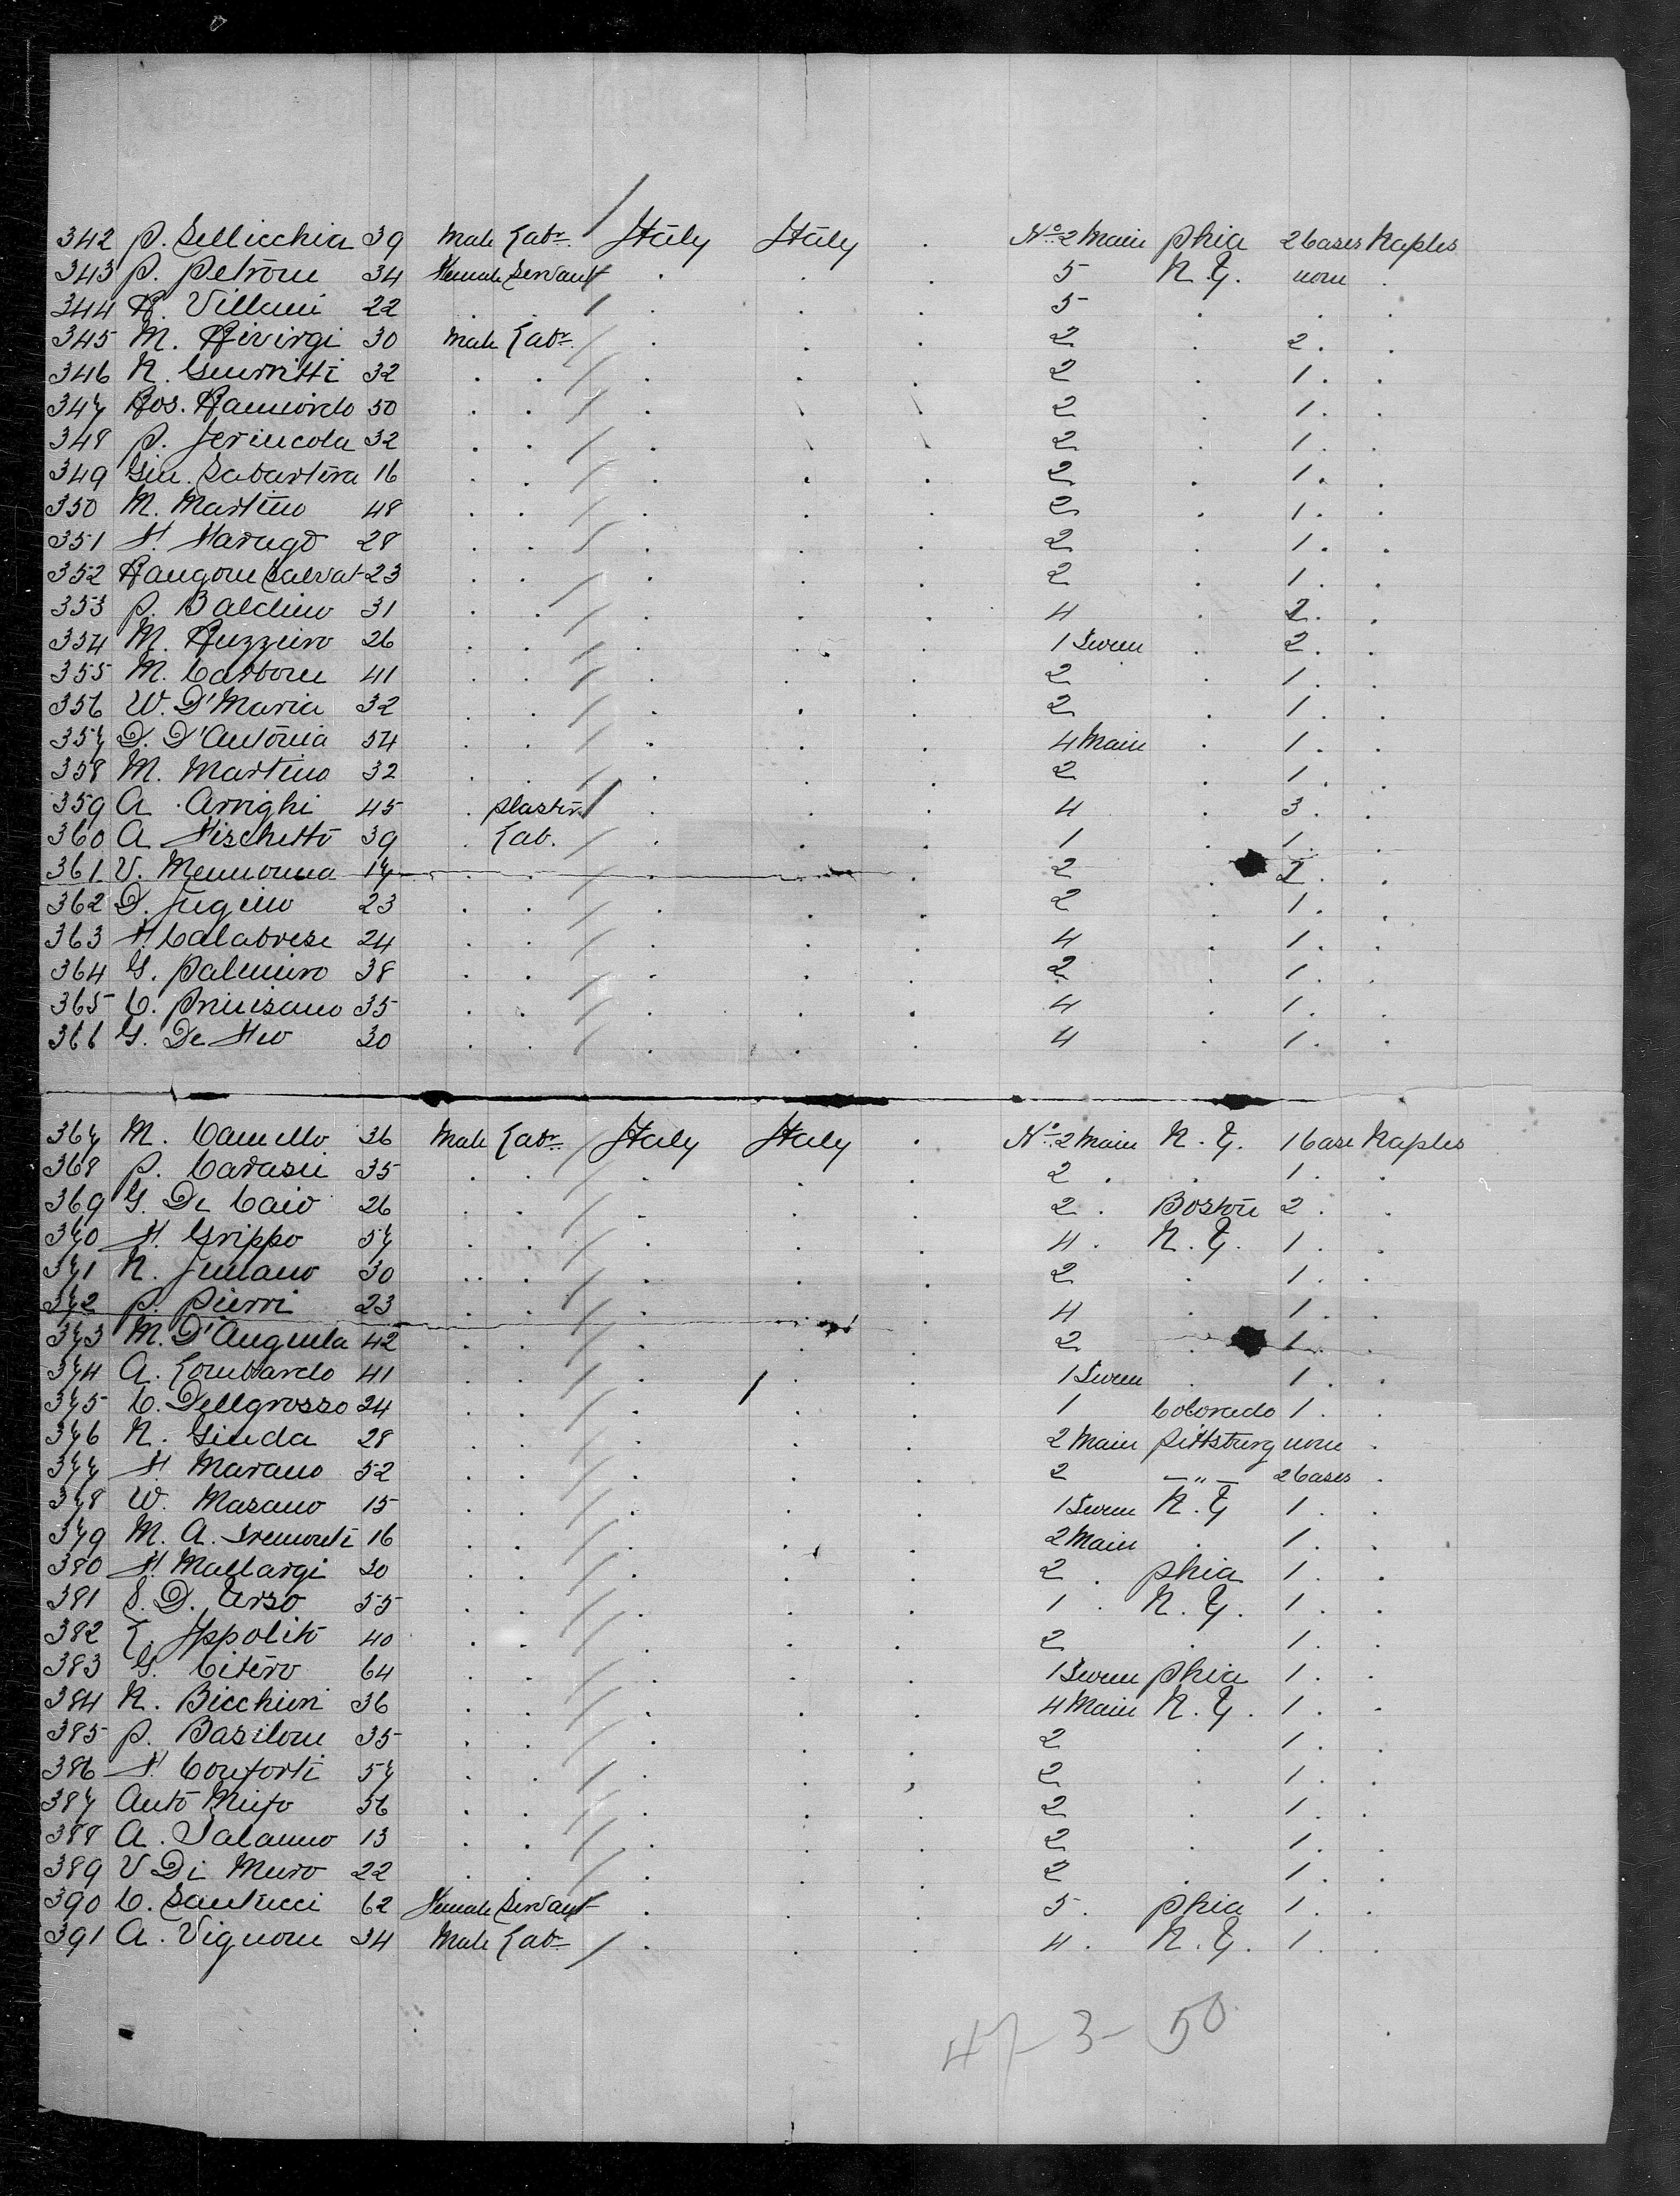 342 P. Sellicchia 39 Male Labr. / Italy Italy . No. 2 Main Phia 2 Cases Naples
343 P. Petrone 34 Female Servant / . . 5 N.Y. none .
344 R. Villani 22 . . / . . . 5 . . .
345 M. Rivirgi 30 Male Labr. / . . . 2 . 2 . .
346 N. Guerritti 32 . . / . . . 2 . 1 . .
347 Ros. Ramondo 50 . . / . . . 2 . 1 . .
348 P. Jerincola 32 . . / . . . 2 . 1 . .
349 Giu. Sabartera 16 . . / . . . 2 . 1 . .
350 M. Martino 48 . . / . . . 2 . 1 . .
351 F. Farugo 28 . . / . . . 2 . 1 . .
352 Rangone Salvat 23 . . / . . . 2 . 1 . .
353 P. Baldino 31 . . / . . . 4 . 2 . .
354 M. Ruzziero 26 . . / . . . 1 . 2 . .
355 M. Carbone 41 . . / . . . 2 . 1 . .
356 W. D'Maria 32 . . / . . . 2 . 1 . .
357 D. D'Antonia 54 . . / . . . 4 Main . 1 . .
358 M. Martino 32 . . / . . . 2 . 1 . .
359 A. Arrighi 45 . Plaster. / . . . 4 . 3 . .
360 A. Fischetto 39 . Lab. / . . . 1 . 1 . .
361 V. Memonna 17 . . / . . . 2 . 2 . .
362 D. Jugino 23 . . / . . . 2 . 1 . .
363 F. Calabrese 24 . . / . . . 4 . 1 . .
364 G. Palmiero 38 . . / . . . 2 . 1 . .
365 C. Prinisano 35 . . / . . . 4 . 1 . .
366 G. De Feo 30 . . / . . . 4 . 1 . .
367 M. Camello 36 Male Labr. / Italy Italy . No. 2 Main N.Y. 1 Case Naples
368 P. Carasii 35 . . / . . . 2 . . 1 . .
369 G. De Caio 26 . . / . . . 2 . Boston 2 . .
370 F. Grippo 57 . . / . . . 4 . N.Y. 1 . .
371 N. Jumano 30 . . / . . . 2 . 1 . .
372 P. Pierri 23 . . / . . . 4 . 1 . .
373 M. D'Anguila 42 . . / . . . 2 . 1 . .
374 A. Lombardo 41 . . / . . . 1 . 1 . .
375 C. Dellgrosso 24 . . / . / . . 1 Colorado 1 . .
376 N. Giuda 28 . . / . . . 2 Main Pittsburg none .
377 F. Marano 52 . . / . . . 2 —"— 2 Cases .
378 W. Masano 15 . . / . . . 1 N.Y 1 . .
379 M. A. Tremonti 16 . . / . . . 2 Main . 1 . .
380 F. Mallargi 30 . . / . . . 2 . Phia 1 . .
381 S. D. Urso 55 . . / . . . 1 . N.Y. 1 . .
382 L. Ippolito 40 . . / . . . 2 . 1 . .
383 G. Citero 64 . . / . . . 1 Phia 1 . .
384 N. Bicchieri 36 . . / . . . 4 Main N.Y. 1 . .
385 P. Basilone 35 . . / . . . 2 . 1 . .
386 F. Conforti 57 . . / . . . 2 . 1 . .
387 Anto Mufo 56 . . / . . . 2 . 1 . .
388 A. Salanno 13 . . / . . . 2 . 1 . .
389 V Di Muro 22 . . / . . . 2 . 1 . .
390 C. Santucci 62 Female Servant / . . . 5 . Phia 1 . .
391 A. Vignone 34 Male Labr / . . . 4 . N.Y. 1 . .
47 - 3 - 50